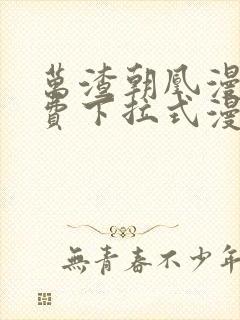 萬渣朝凰漫
費下拉式漫
無青春不少年